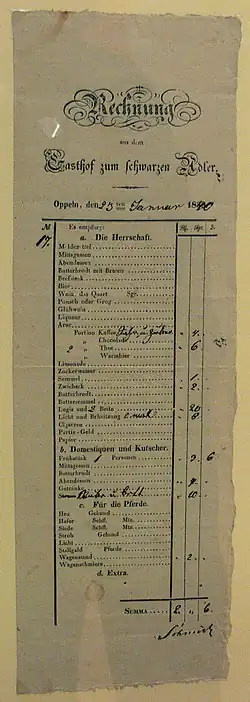 Rechnung
aus dem
Gasthof zum schwarzen Adler.
Oppeln, den 25 ten Januar 1840
№ Es empfing: Rtl. Sgr. ₰.
17. a. Die Herrschaft.
Mittagessen
Abendessen
Butterbrodt mit Braten
Beefsteak
Bier
Wein, das Quart Sgr.
Punsch oder Grog
Glühwein
Liqueur
Arac
Portion Kaffee 4.
" Chocolade
2 " Thee 6
" Warmbier
Limonade
Zuckerwasser
Semmel 1.
Zwieback 2.
Butterbrodt
Buttersemmel
Logis und 2 Bette 20
Licht und Beheitzung 8
Cigarren
Partie-Geld
Papier
b. Domestiquen und Kutscher.
Frühstück 1 Personen 9. 6
Mittagessen
Butterbrodt
Abendessen
Getränke
10.
c. Für die Pferde.
Heu Gebund
Hafer Scheff. Mtz.
Siede Scheff. Mtz.
Stroh Gebund
Licht
Stallgeld Pferde
Wagenstand 2.
Wagenschmiere
d. Extra.
Summa 2. " 6.